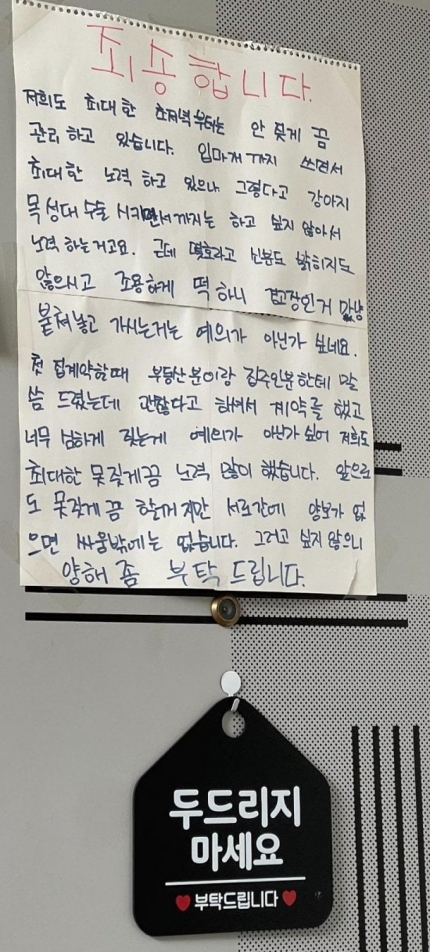 죄송합니다.
저희도 최대한 초저녁부터는 안 짖게 끔
관리 하고 있습니다. 입마개 까지 쓰면서
최대한 노력 하고 있으나 그렇다고 강아지
목 성대 수술 시키면서 까지는 하고 싶지 않아서
노력 하는거고요. 근데 몇호라고 신분도 밝히지도
않으시고 조용하게 떡 하니 경고장인거 마냥
붙혀놓고 가시는거는 예의가 아닌가 싶네요.
첫 집계약할때 부동산분이랑 집주인분한테 말
씀 드렸는데 괜찮다고 하여서 계약을 했고
너무 심하게 짖는게 예의가 아닌가 싶어 저희도
최대한 못짖게끔 노력 많이 했습니다. 앞으로
도 못짖게 끔 할꺼지만 서로간에 양보가 없
으면 싸움밖에는 없습니다. 그러고 싶지 않으니
양해 좀 부탁 드립니다.
두드리지
마세요
부탁드립니다